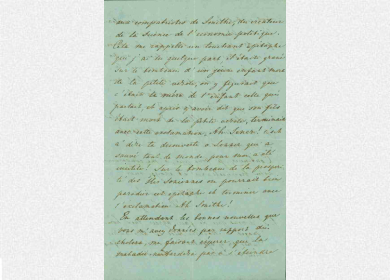 aux compatriotes de Smith, du créateur
de la Science de l'économie politique.
Cela me rappelle un touchant épitaphe
que j'ai lu quelque part il était gravé
sur le tombeau d'un jeune enfant mort
de la petite vérole, on y figurait que
c'était la mère de l'enfant elle qui
parlait, et après avoir dit que son fils
était mort de la petite vérole, terminait
avec cette exclamation, Ah Jenner! c'est
à dire ta découverte ô Jenner qui a
sauvé tant de monde pour moi a été
inutile! Sur le tombeau de la
des Iles Ioniennes on pourrait bien
parodier cet épitaphe et terminer avec
l'exclamation Ah Smith!
En attendant les bonnes nouvelles que
vous m'avez données par rapport du
choléra, me faisant espérer, que la
maladie ne tardera pas à s'éteindre